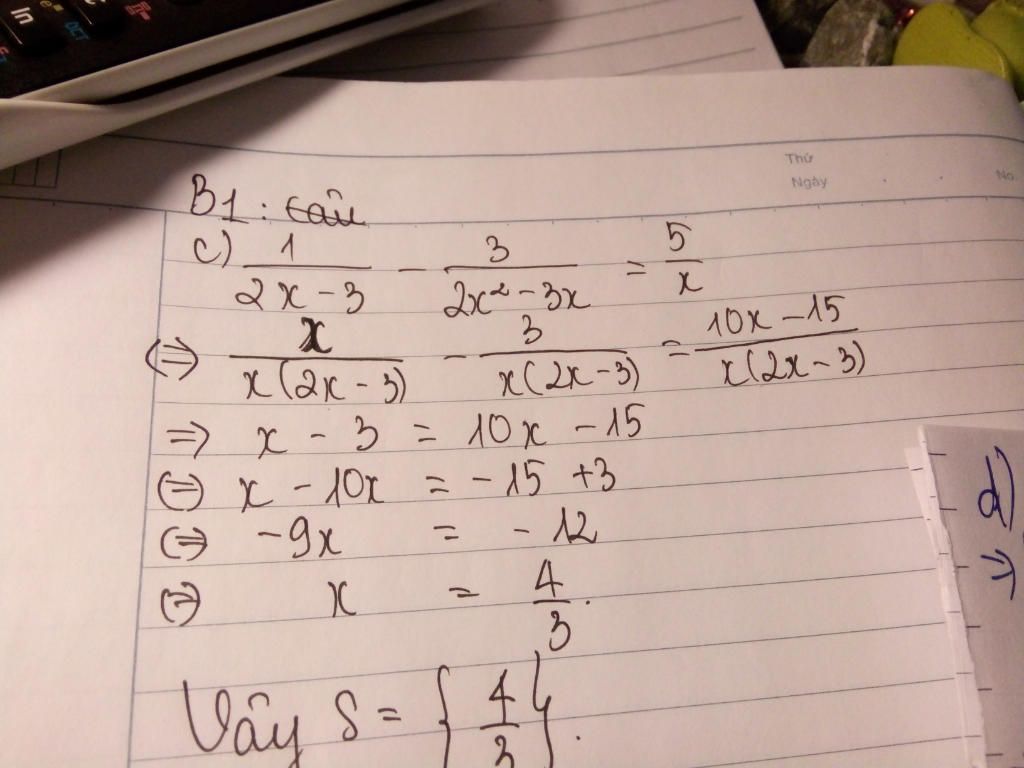 ln
Thứ
Ngày
No.
B1 : câu
c) 1/(2x - 3) - 3/(2x² - 3x) = 5/x
(=) x/(x(2x - 3)) - 3/(x(2x - 3)) = (10x - 15)/(x(2x - 3))
=) x - 3 = 10x - 15
(=) x - 10x = - 15 + 3
(=) - 9x = - 12
(=) x = 4/3.
Vậy S = {4/3}.
d)
=)